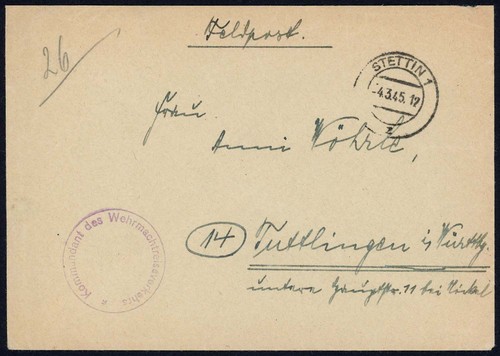 Feldpost.
26
STETTIN 1
-4.3.45.12
z
Frau
Anni Wöhrle,
Kommandant des Wehrmachtreiseverkehrs
14 Tuttlingen i/Württbg.
untere Hauptstr. 11 bei Nickel